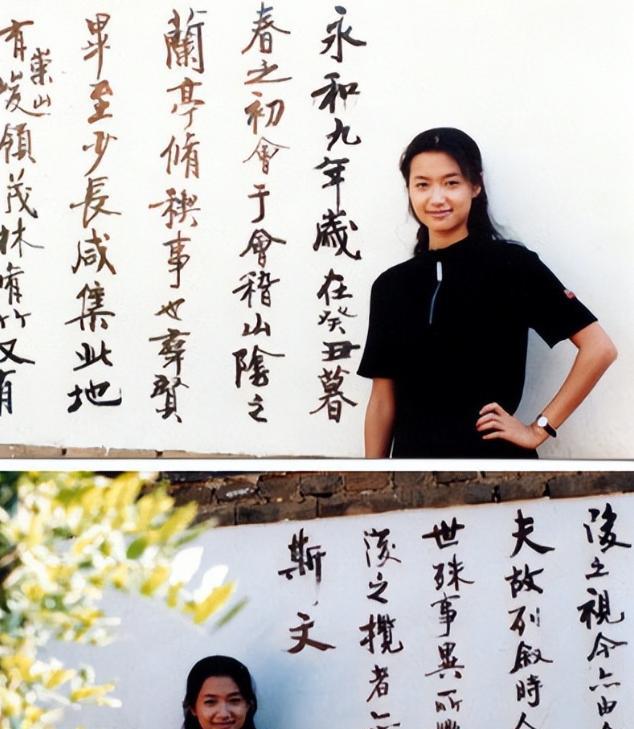 永和九年歲在癸丑暮
春之初會于會稽山陰之
蘭亭脩稧事也羣賢
畢至少長咸集此地
有崇山峻領茂林脩竹又有
後之視今亦由今
夫故列敘時人
世殊事異所
後之攬者亦
斯文